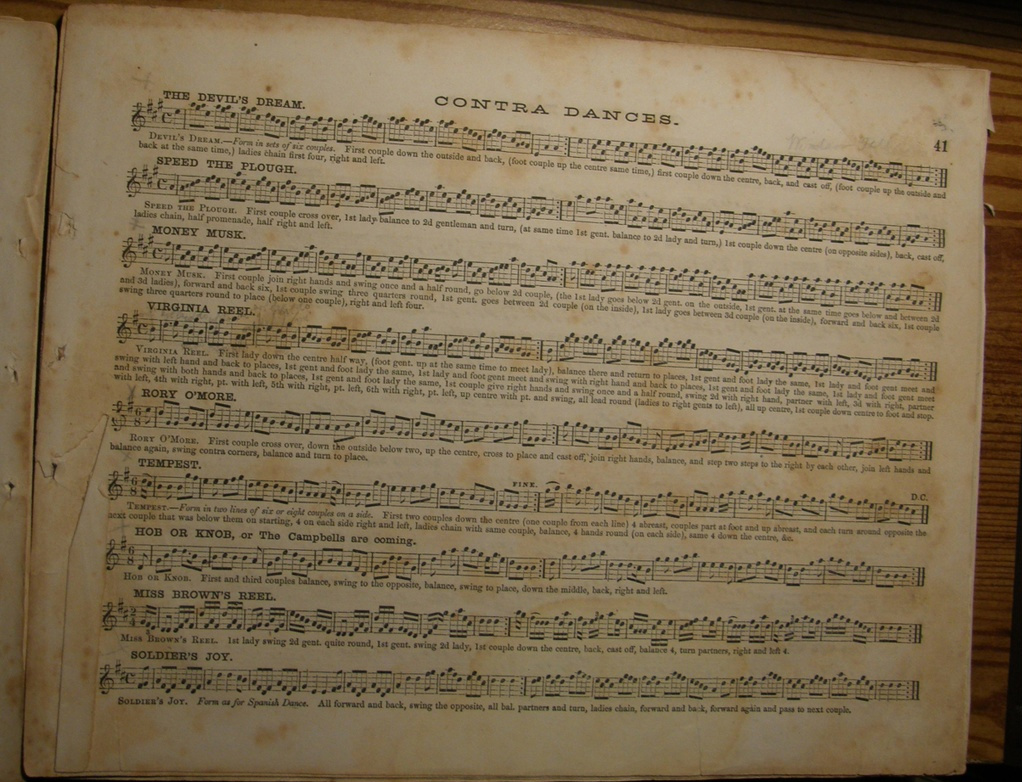 CONTRA DANCES.
41
THE DEVIL'S DREAM.
DEVIL'S DREAM.—Form in sets of six couples. First couple down the outside and back, (foot couple up the centre same time,) first couple down the centre, back, and cast off, (foot couple up the outside and
back at the same time,) ladies chain first four, right and left.
SPEED THE PLOUGH.
SPEED THE PLOUGH. First couple cross over, 1st lady balance to 2d gentleman and turn, (at same time 1st gent. balance to 2d lady and turn,) 1st couple down the centre (on opposite sides), back, cast off,
ladies chain, half promenade, half right and left.
MONEY MUSK.
MONEY MUSK. First couple join right hands and swing once and a half round, go below 2d couple, (the 1st lady goes below 2d gent. on the outside, 1st gent. at the same time goes below and between 2d
and 3d ladies), forward and back six, 1st couple swing three quarters round, 1st gent. goes between 2d couple (on the inside), 1st lady goes between 3d couple (on the inside), forward and back six, 1st couple
swing three quarters round to place (below one couple), right and left four.
VIRGINIA REEL.
VIRGINIA REEL. First lady down the centre half way, (foot gent. up at the same time to meet lady), balance there and return to places, 1st gent and foot lady the same, 1st lady and foot gent meet and
swing with left hand and back to places, 1st gent and foot lady the same, 1st lady and foot gent meet and swing with right hand and back to places, 1st gent and foot lady the same, 1st lady and foot gent meet
and swing with both hands and back to places, 1st gent and foot lady the same, 1st couple give right hands and swing once and a half round, swing 2d with right hand, partner with left, 3d with right, partner
with left, 4th with right, pt. with left, 5th with right, pt. left, 6th with right, pt. left, up centre with pt. and swing, all lead round (ladies to right gents to left), all up centre, 1st couple down centre to foot and stop.
RORY O'MORE.
RORY O'MORE. First couple cross over, down the outside below two, up the centre, cross to place and cast off, join right hands, balance, and step two steps to the right by each other, join left hands and
balance again, swing contra corners, balance and turn to place.
TEMPEST.
FINE.
D.C.
TEMPEST.—Form in two lines of six or eight couples on a side. First two couples down the centre (one couple from each line) 4 abreast, couples part at foot and up abreast, and each turn around opposite the
next couple that was below them on starting, 4 on each side right and left, ladies chain with same couple, balance, 4 hands round (on each side), same 4 down the centre, &c.
HOB OR KNOB, or The Campbells are coming.
HOB OR KNOB. First and third couples balance, swing to the opposite, balance, swing to place, down the middle, back, right and left.
MISS BROWN'S REEL.
MISS BROWN'S REEL. 1st lady swing 2d gent. quite round, 1st gent. swing 2d lady, 1st couple down the centre, back, cast off, balance 4, turn partners, right and left 4.
SOLDIER'S JOY.
SOLDIER'S JOY. Form as for Spanish Dance. All forward and back, swing the opposite, all bal. partners and turn, ladies chain, forward and back, forward again and pass to next couple.